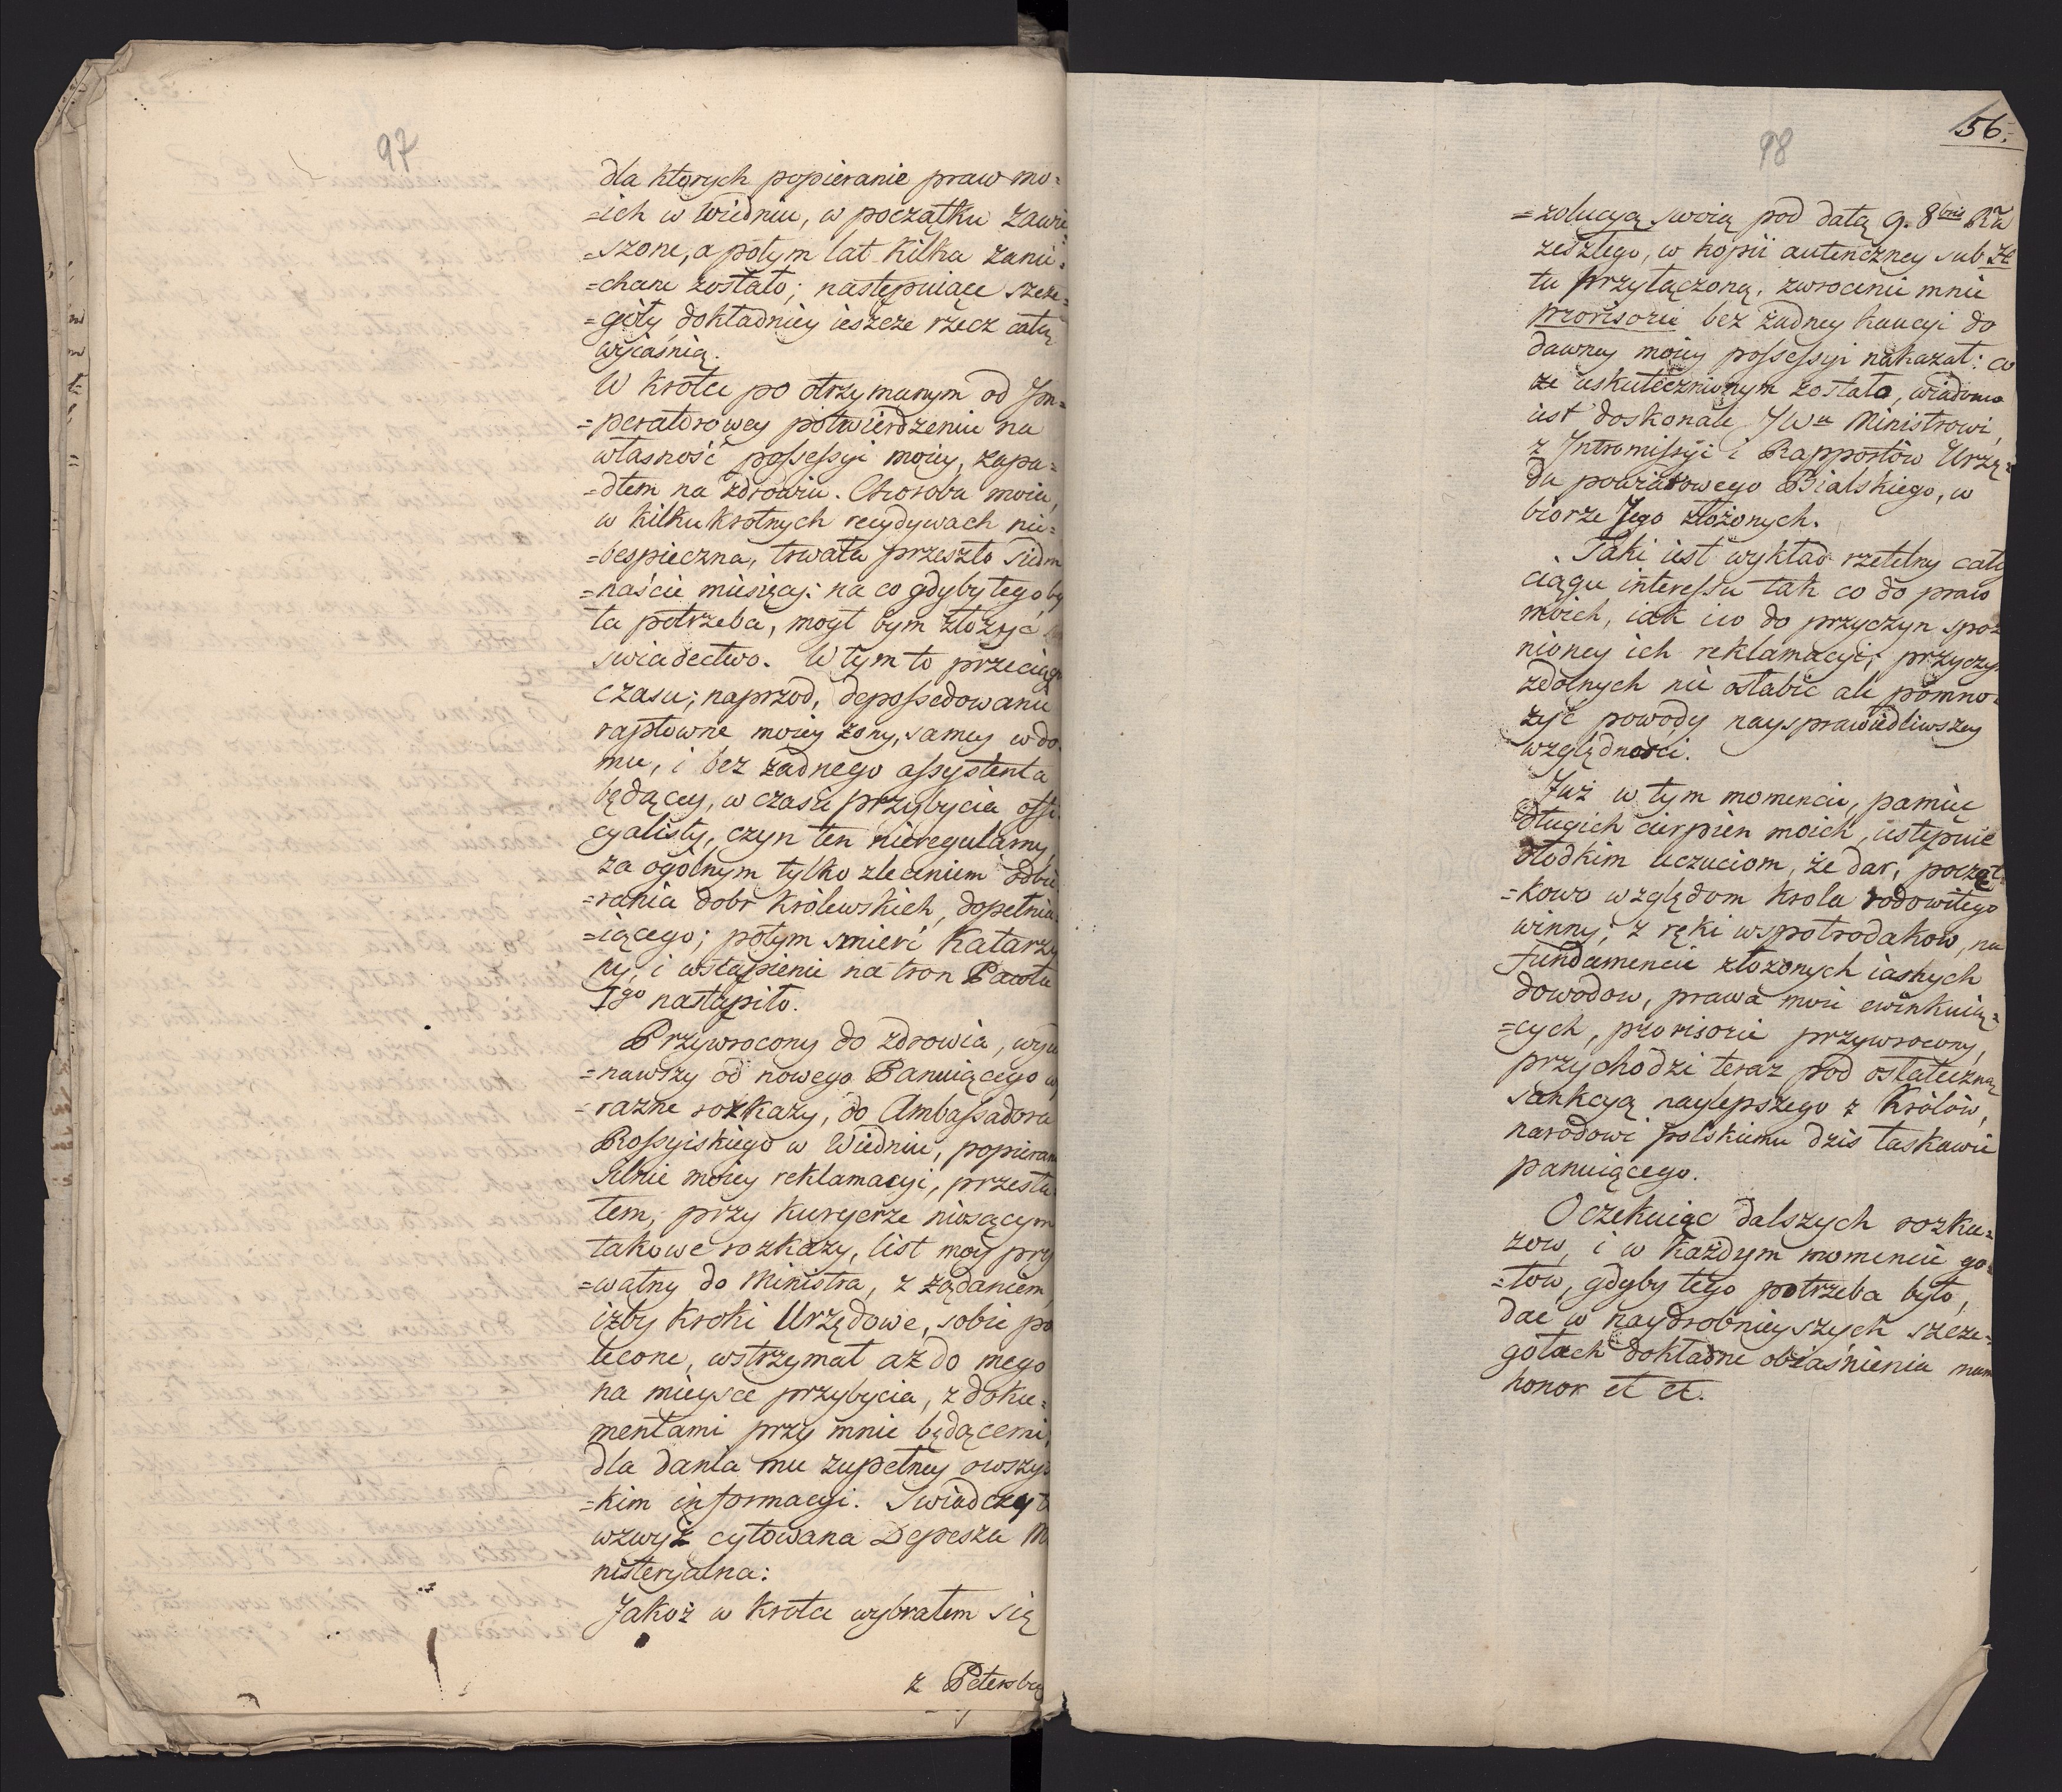 97
dla ktorych popieranie praw mo=
=ich w Wiedniu, w początku zawie
=szone, a potym lat kilka zanie=
=chane zostało; następuiące szcze=
=goły, dokładniey ieszcze rzecz całą
wyiaśnią.
W krotce po otrzymanym od Im=
=peratorowey potwierdzeniu na
własność possessyi moiey, zapa=
=dłem na zdrowiu. Choroba moia,
w kilkukrotnych recydywach nie=
=bespieczna, trwała przeszło siedm
=naście miesięcy: na co gdyby tego by
ła potrzeba, mogł bym złożyć
swiadectwo. W tym to przeciągu
czasu; naprzod, depossedowanie
raptowne moiey żony, samey w do
mu, i bez żadnego assystenta
będącey, w czasie przybycia offi
cyalisty, czyn ten nieregularny,
za ogolnym tylko zleceniem odbie
=rania dobr Królewskich, dopełnia
=iącego; potym smierć Katarzy
ny, i wstąpienie na tron Pawła
Igo nastąpiło.
Przywrocony do zdrowia, wyie
=nawszy od nowego Panuiącego wy
=razne rozkazy, do Ambassadora
Rossyiskiego w Wiedniu, popieran
silnie moiey reklamacyi, przesła
łem, przy kuryerze niosącym
takowe rozkazy, list moy pry
=watny do Ministra, z żądaniem,
iżby kroki Urzędowe, sobie po
lecone, wstrzymał aż do mego
na mieysce przybycia, z doku=
mentami przy mnie będącemi,
dla dania mu zupełney owszys
=kim informacyi. Swiadczy to
wzwyż cytowana Depesza Mi
nisteryalna:
Jakoż w krotce wybrałem się
z Petersbur
98
56.
=zolucyą swoią pod datą 9. 8bris Rũ
zeszłego, w kopii autenczney sub H
tu przyłączoną, zwrocenie mnie
prorisorie bez żadney kaucyi do
dawney moiey possessyi nakazał: co
że uskutecznionym zostało, wiadomo
iest doskonale JWu Ministrowi,
z Intromissyi i Rapportów Urzę=
du powiatowego Bialskiego, w
biorze Jego złożonych.
Taki iest wykład rzetelny cały
ciągu interessu tak co do praw
moich, iak ico do przyczyn spoz
nioney ich reklamacyi; przyczyn
zdolnych nie osłabić ale pomno=
żyć powody naysprawiedliwszey
względności.
Już w tym momencie, pamięć
długich cierpien moich, ustępuie
słodkim uczuciom, że dar, począt
=kowo względom Krola rodowitego
winny; z ręki wspołrodakow, na
fundamencie złożonych iasnych
dowodow, prawa moie ewinkuią=
=cych, prorisorie przywrocony,
przychodzi teraz pod ostateczną
sankcyą naylepszego z Królów,
narodowi polskiemu dzis łaskawie
panuiącego.
Oczekuiąc dalszych rozka=
zow, i w każdym momencie go=
=tow, gdyby tego potrzeba było,
dac w naydrobnieyszych szcze=
gołach dokładne obiaśnienia mam
honor et et.